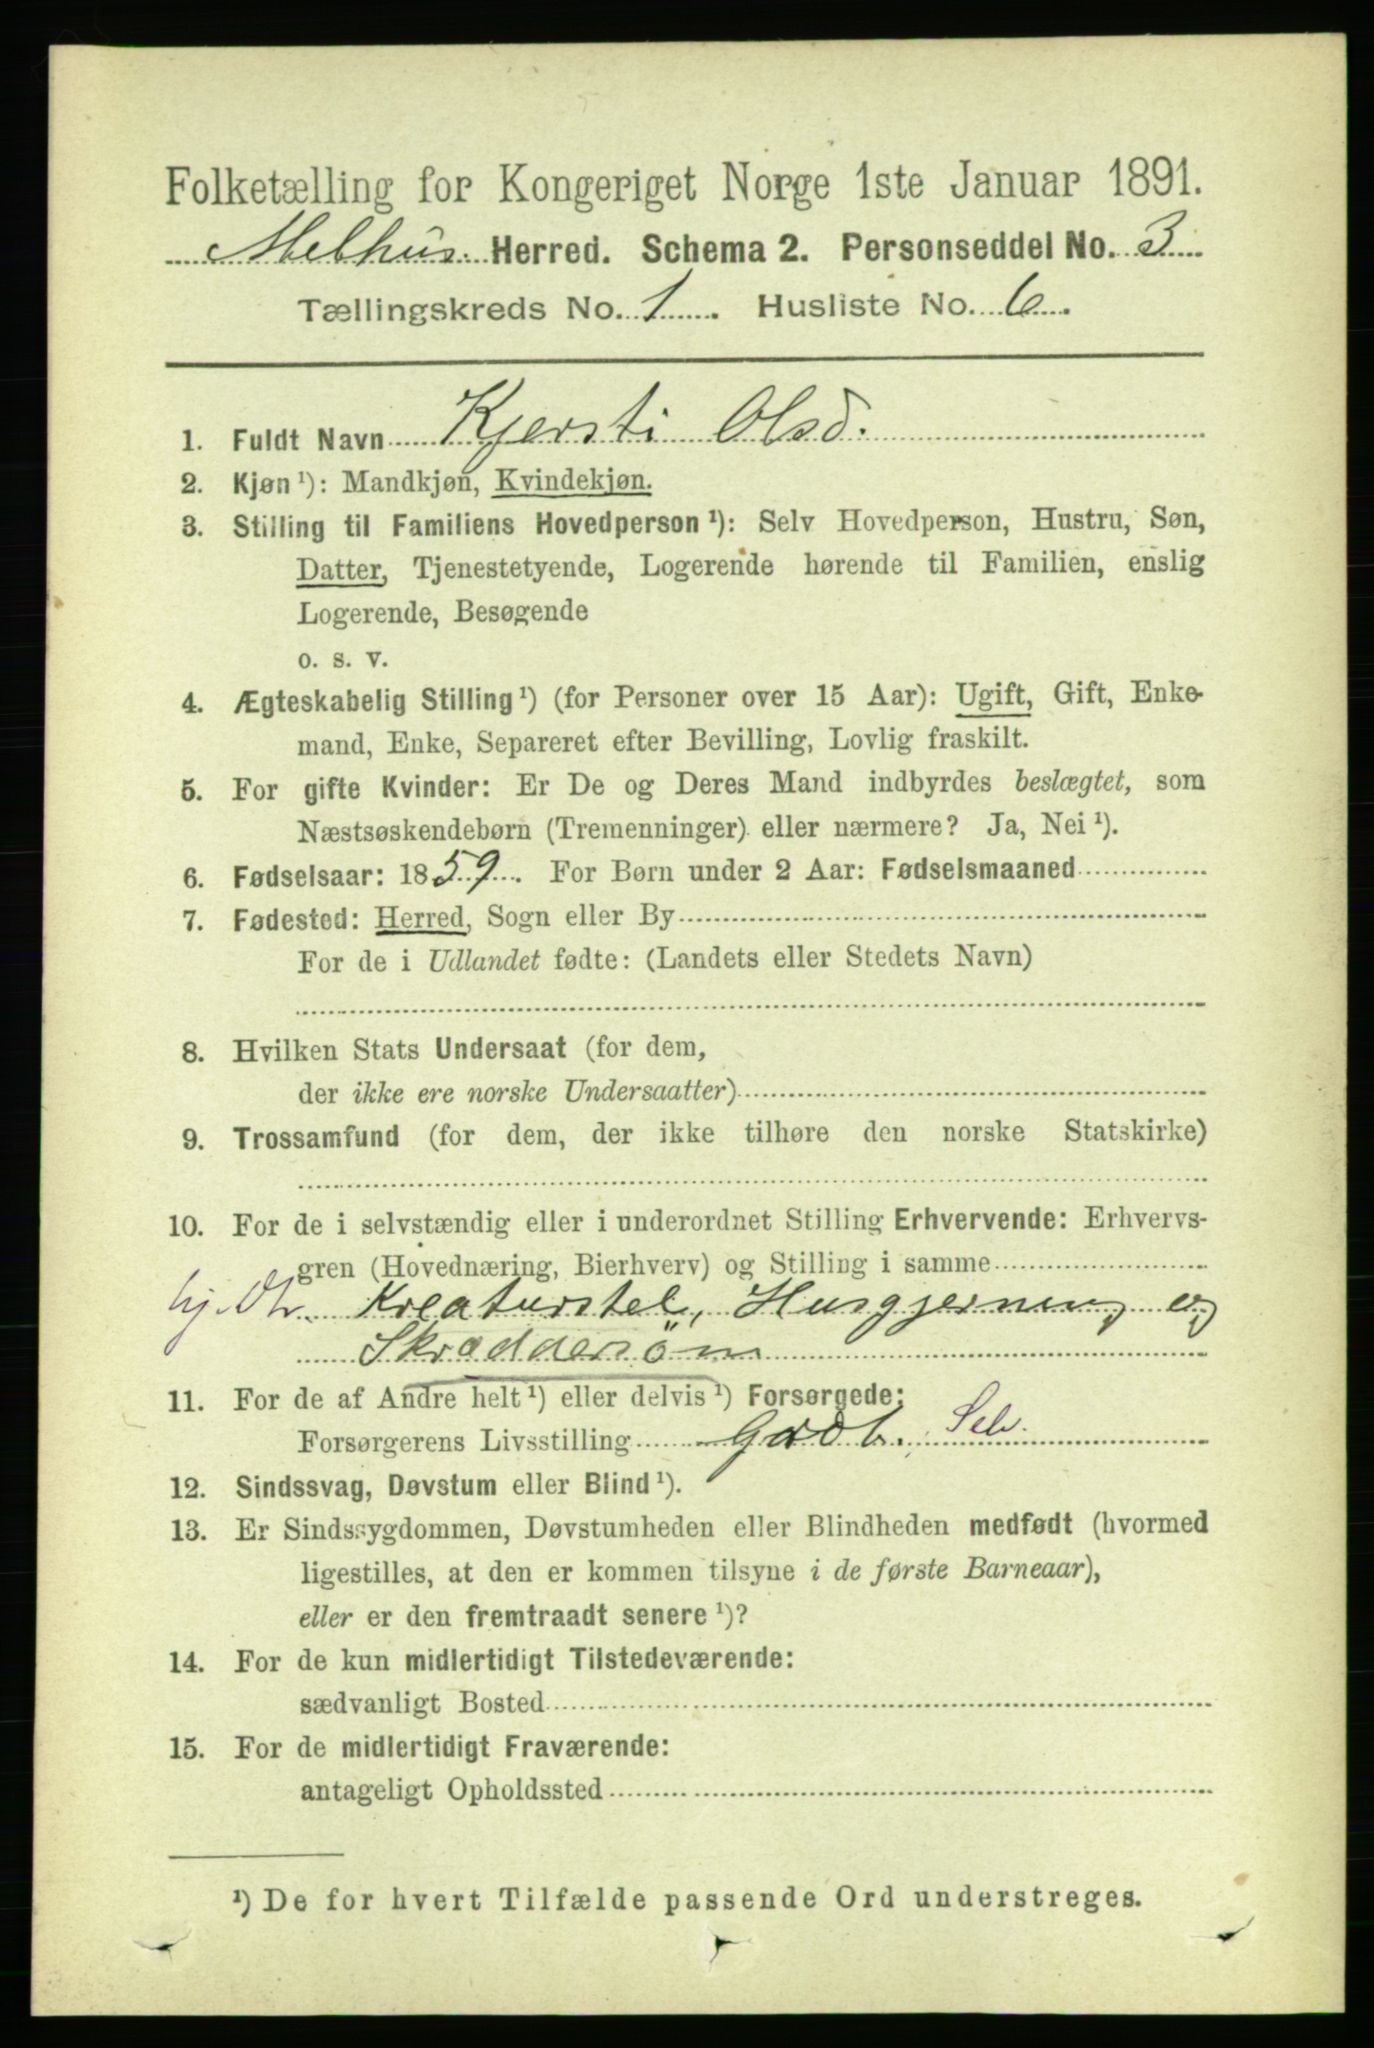 Folketælling for Kongeriget Norge 1ste Januar 1891.
Melhus Herred. Schema 2. Personseddel No. 3
Tællingskreds No. 1 Husliste No. 6
1. Fuldt Navn Kjersti Olsd.
2. Kjøn ¹): Mandkjøn, Kvindekjøn.
3. Stilling til Familiens Hovedperson ¹): Selv Hovedperson, Hustru, Søn,
Datter, Tjenestetyende, Logerende hørende til Familien, enslig
Logerende, Besøgende
o. s. v.
4. Ægteskabelig Stilling ¹) (for Personer over 15 Aar): Ugift, Gift, Enke-
mand, Enke, Separeret efter Bevilling, Lovlig fraskilt.
5. For gifte Kvinder: Er De og Deres Mand indbyrdes beslægtet, som
Næstsøskendebørn (Tremenninger) eller nærmere? Ja, Nei ¹).
6. Fødselsaar: 1859. For Børn under 2 Aar: Fødselsmaaned
7. Fødested: Herred, Sogn eller By
For de i Udlandet fødte: (Landets eller Stedets Navn)
8. Hvilken Stats Undersaat (for dem,
der ikke ere norske Undersaatter)
9. Trossamfund (for dem, der ikke tilhøre den norske Statskirke)
10. For de i selvstændig eller i underordnet Stilling Erhvervende: Erhvervs-
gren (Hovednæring, Bierhverv) og Stilling i samme
hj. Dtr. Kreaturstel, Husgjerning og
Skræddersöm
11. For de af Andre helt ¹) eller delvis ¹) Forsørgede:
Forsørgerens Livsstilling Gdb. Selv.
12. Sindssvag, Døvstum eller Blind ¹).
13. Er Sindssygdommen, Døvstumheden eller Blindheden medfødt (hvormed
ligestilles, at den er kommen tilsyne i de første Barneaar),
eller er den fremtraadt senere ¹)?
14. For de kun midlertidigt Tilstedeværende:
sædvanligt Bosted
15. For de midlertidigt Fraværende:
antageligt Opholdssted
¹) De for hvert Tilfælde passende Ord understreges.